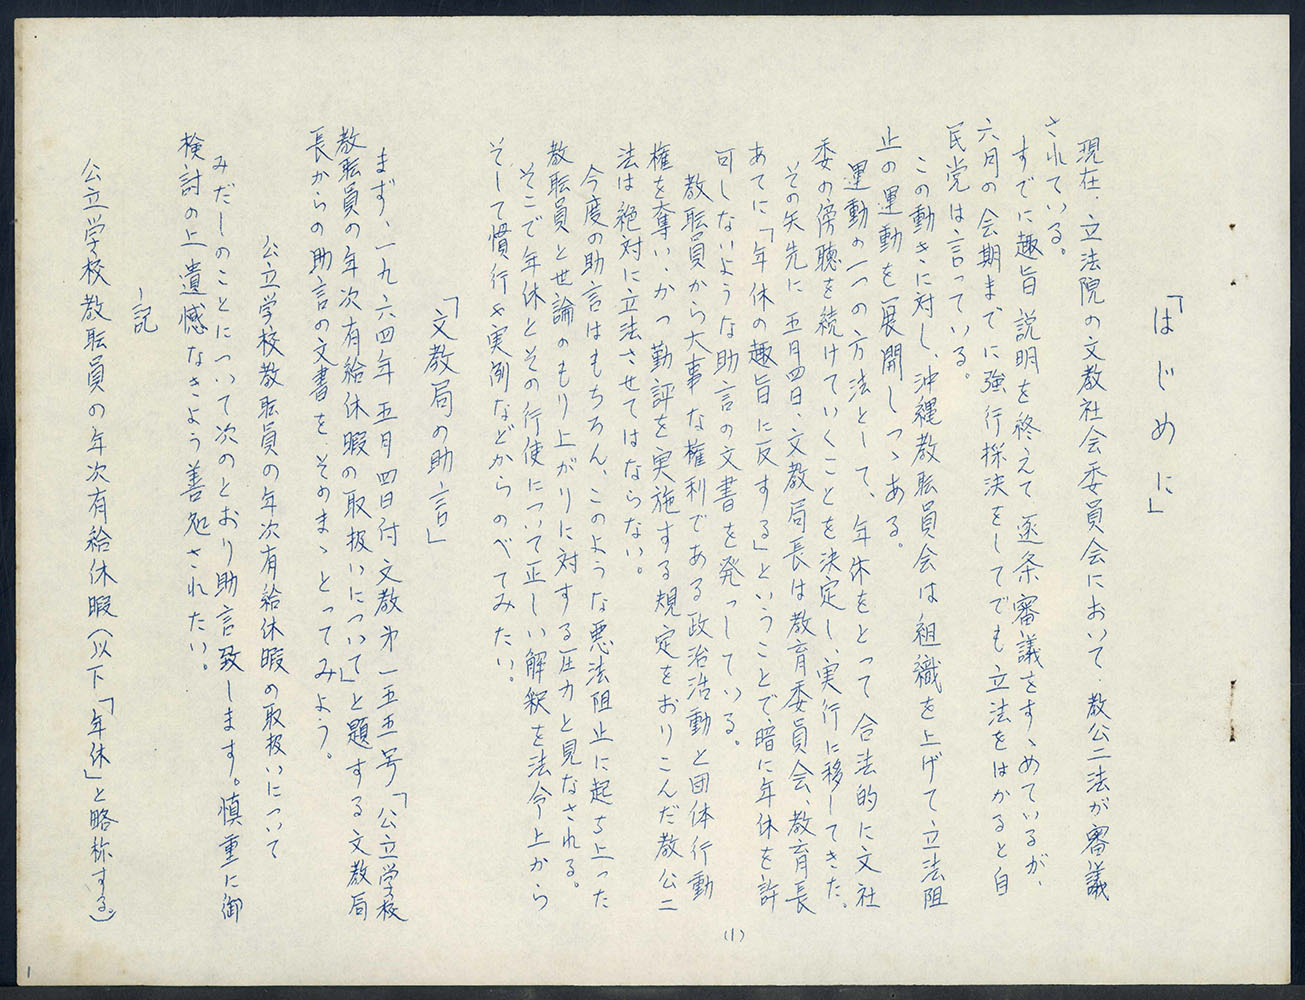 「はじめに」
現在、立法院の文教社会委員会において、教公二法が審議
されている。
すでに趣旨説明を終えて逐条審議をすゝめているが、
六月の会期までに強行採決をしてでも立法をはかると自
民党は言っている。
この動きに対し、沖縄教職員会は組織を上げて立法阻
止の運動を展開しつゝある。
運動の一つの方法として、年休をとって合法的に文社
委の傍聴を続けていくことを決定し、実行に移してきた。
その矢先に五月四日、文教局長は教育委員会、教育長
あてに「年休の趣旨に反する」ということで、暗に年休を許
可しないような助言の文書を発っしている。
教職員から大事な権利である政治活動と団体行動
権を奪い、かつ勤評を実施する規定をおりこんだ教公二
法は絶対に立法させてはならない。
今度の助言はもちろん、このような悪法阻止に起ち上った
教職員と世論のもり上がりに対する圧力と見なされる。
そこで年休とその行使について正しい解釈を法令上から
そして慣行や実例などからのべてみたい。
「文教局の助言」
まず、一九六四年五月四日付文教第一五五号「公立学校
教職員の年次有給休暇の取扱いについて」と題する文教局
長からの助言の文書をそのまゝとってみよう。
公立学校教職員の年次有給休暇の取扱いについて
みだしのことについて次のとおり助言致します。慎重に御
検討の上遺憾なきよう善処されたい。
記
公立学校教職員の年次有給休暇（以下「年休」と略称する）
(1)
1